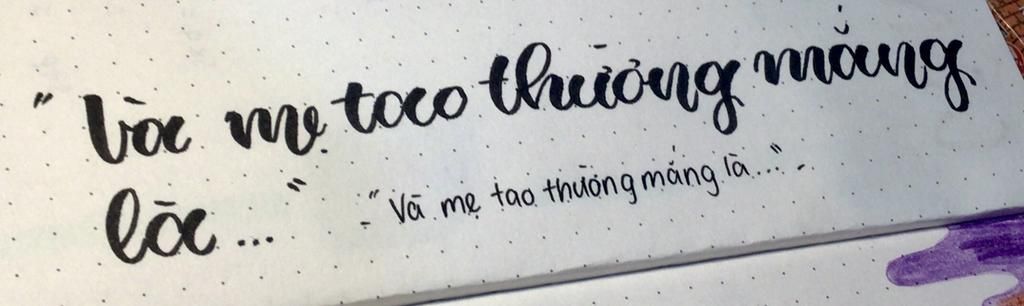 "Và mẹ tao thường mắng
là..."
- "Và mẹ tao thường mắng là..." -